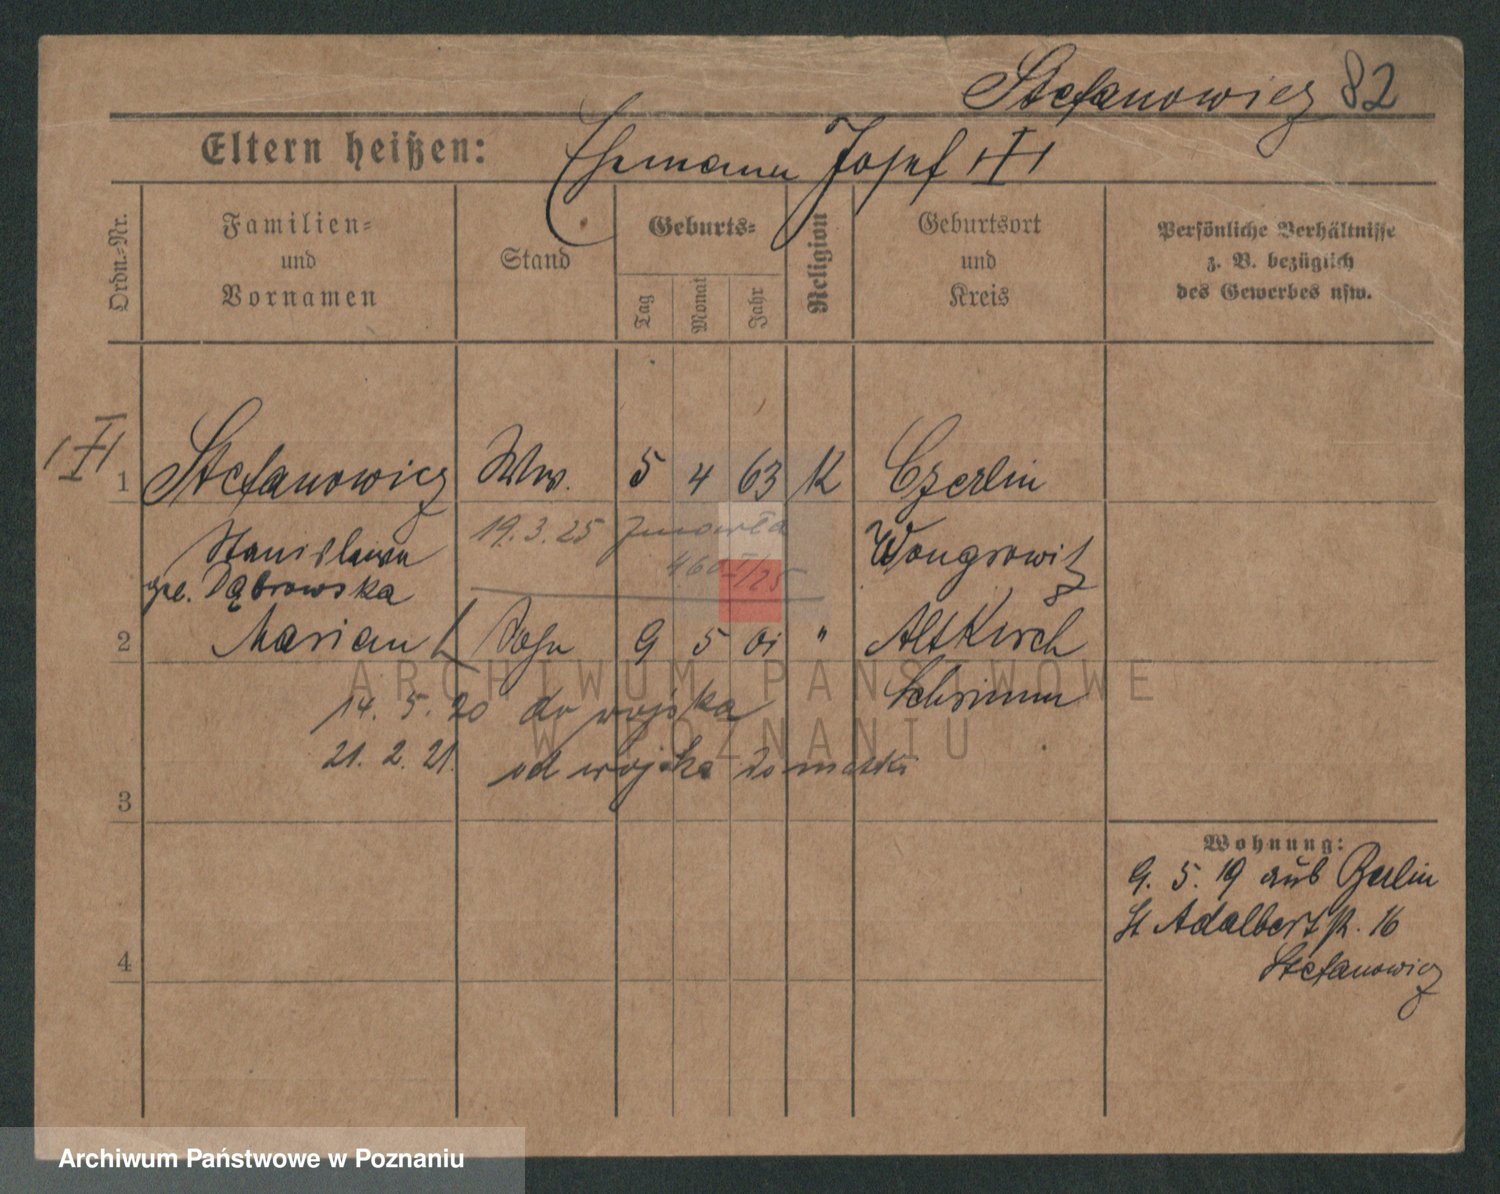 Stefanowicz 82
Eltern heißen: Ehemann Josef
Ordn.-Nr.
Familien-
und
Vornamen
Stand
Geburts-
Tag
Monat
Jahr
Religion
Geburtsort
und
Kreis
Persönliche Verhältnisse
z. B. bezüglich
des Gewerbes usw.
1 Stefanowicz Ww. 5 4 63 K Czerlin
Stanislawa 19.3.25 zmarła Wongrowitz
Dąbrowska
2 Marian Sohn 9 5 01 " Altkirch
14. 5. 20 do wojska Schrimm
21. 2. 21. od wojska do matki
3
4
Wohnung:
9. 5. 19 aus Berlin
St Adalbertstr. 16
Stefanowicz
ARCHIWUM PAŃSTWOWE
W POZNANIU
Archiwum Państwowe w Poznaniu